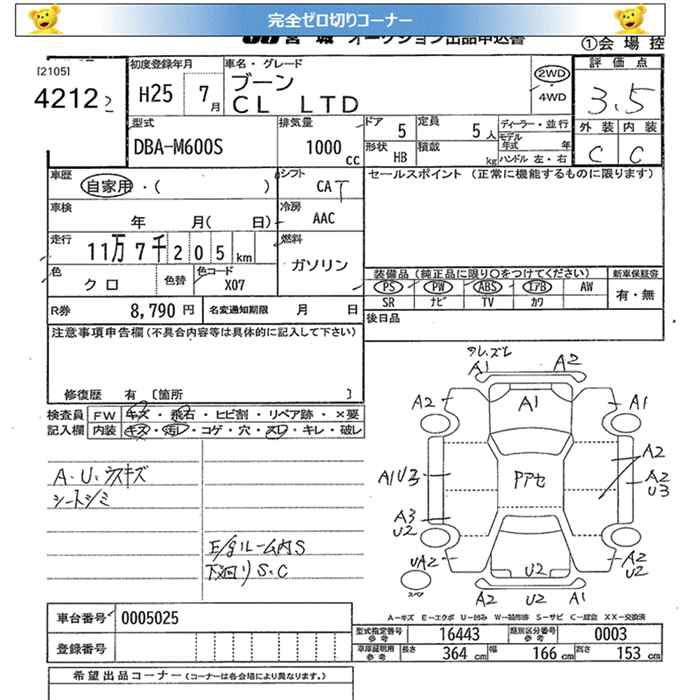 完全ゼロ切りコーナー
宮城 オークション出品申込書
①会場控
[2105]
4212 2
初度登録年月
H25 7月
車名・グレード
ブーン
CL LTD
2WD
4WD
評価点
3.5
外装 内装
C C
型式
DBA-M600S
排気量
1000 cc
ドア 5
定員 5人
形状 HB
積載 kg
ディーラー・並行
モデル年式 年
ハンドル 左・右
車歴
自家用・( )
シフト
CAT
セールスポイント (正常に機能するものに限ります)
車検
年 月( 日)
冷房
AAC
走行
11万7千205km
燃料
ガソリン
色
クロ
色替
色コード
X07
装備品 (純正品に限り○をつけてください)
新車保証書
PS PW ABS エアB AW
SR ナビ TV カワ
有・無
R券 8,790円
名変通知期限 月 日
後日品
注意事項申告欄 (不具合内容等は具体的に記入して下さい)
修復歴 有 [箇所 ]
検査員記入欄
FW キズ・飛石・ヒビ割・リペア跡・×要
内装 キズ・汚レ・コゲ・穴・スレ・キレ・破レ
A・U・ウスキズ
シートシミ
E/gルーム内S
下廻りS.C
A1 A2
A2 A1 A1
A2
A1U3 Pアセ A2
U3
A3
U2
UA2 U2 A2
U2
スペア
A2 U2 A1
A-キズ E-エクボ U-凹み W-補修跡 S-サビ C-腐食 XX-交換済
車台番号 0005025
登録番号
型式指定番号 参考 16443
類別区分番号 参考 0003
車庫証明用 参考 長さ 364cm 幅 166cm 高さ 153cm
希望出品コーナー (コーナーは各会場により異なります。)